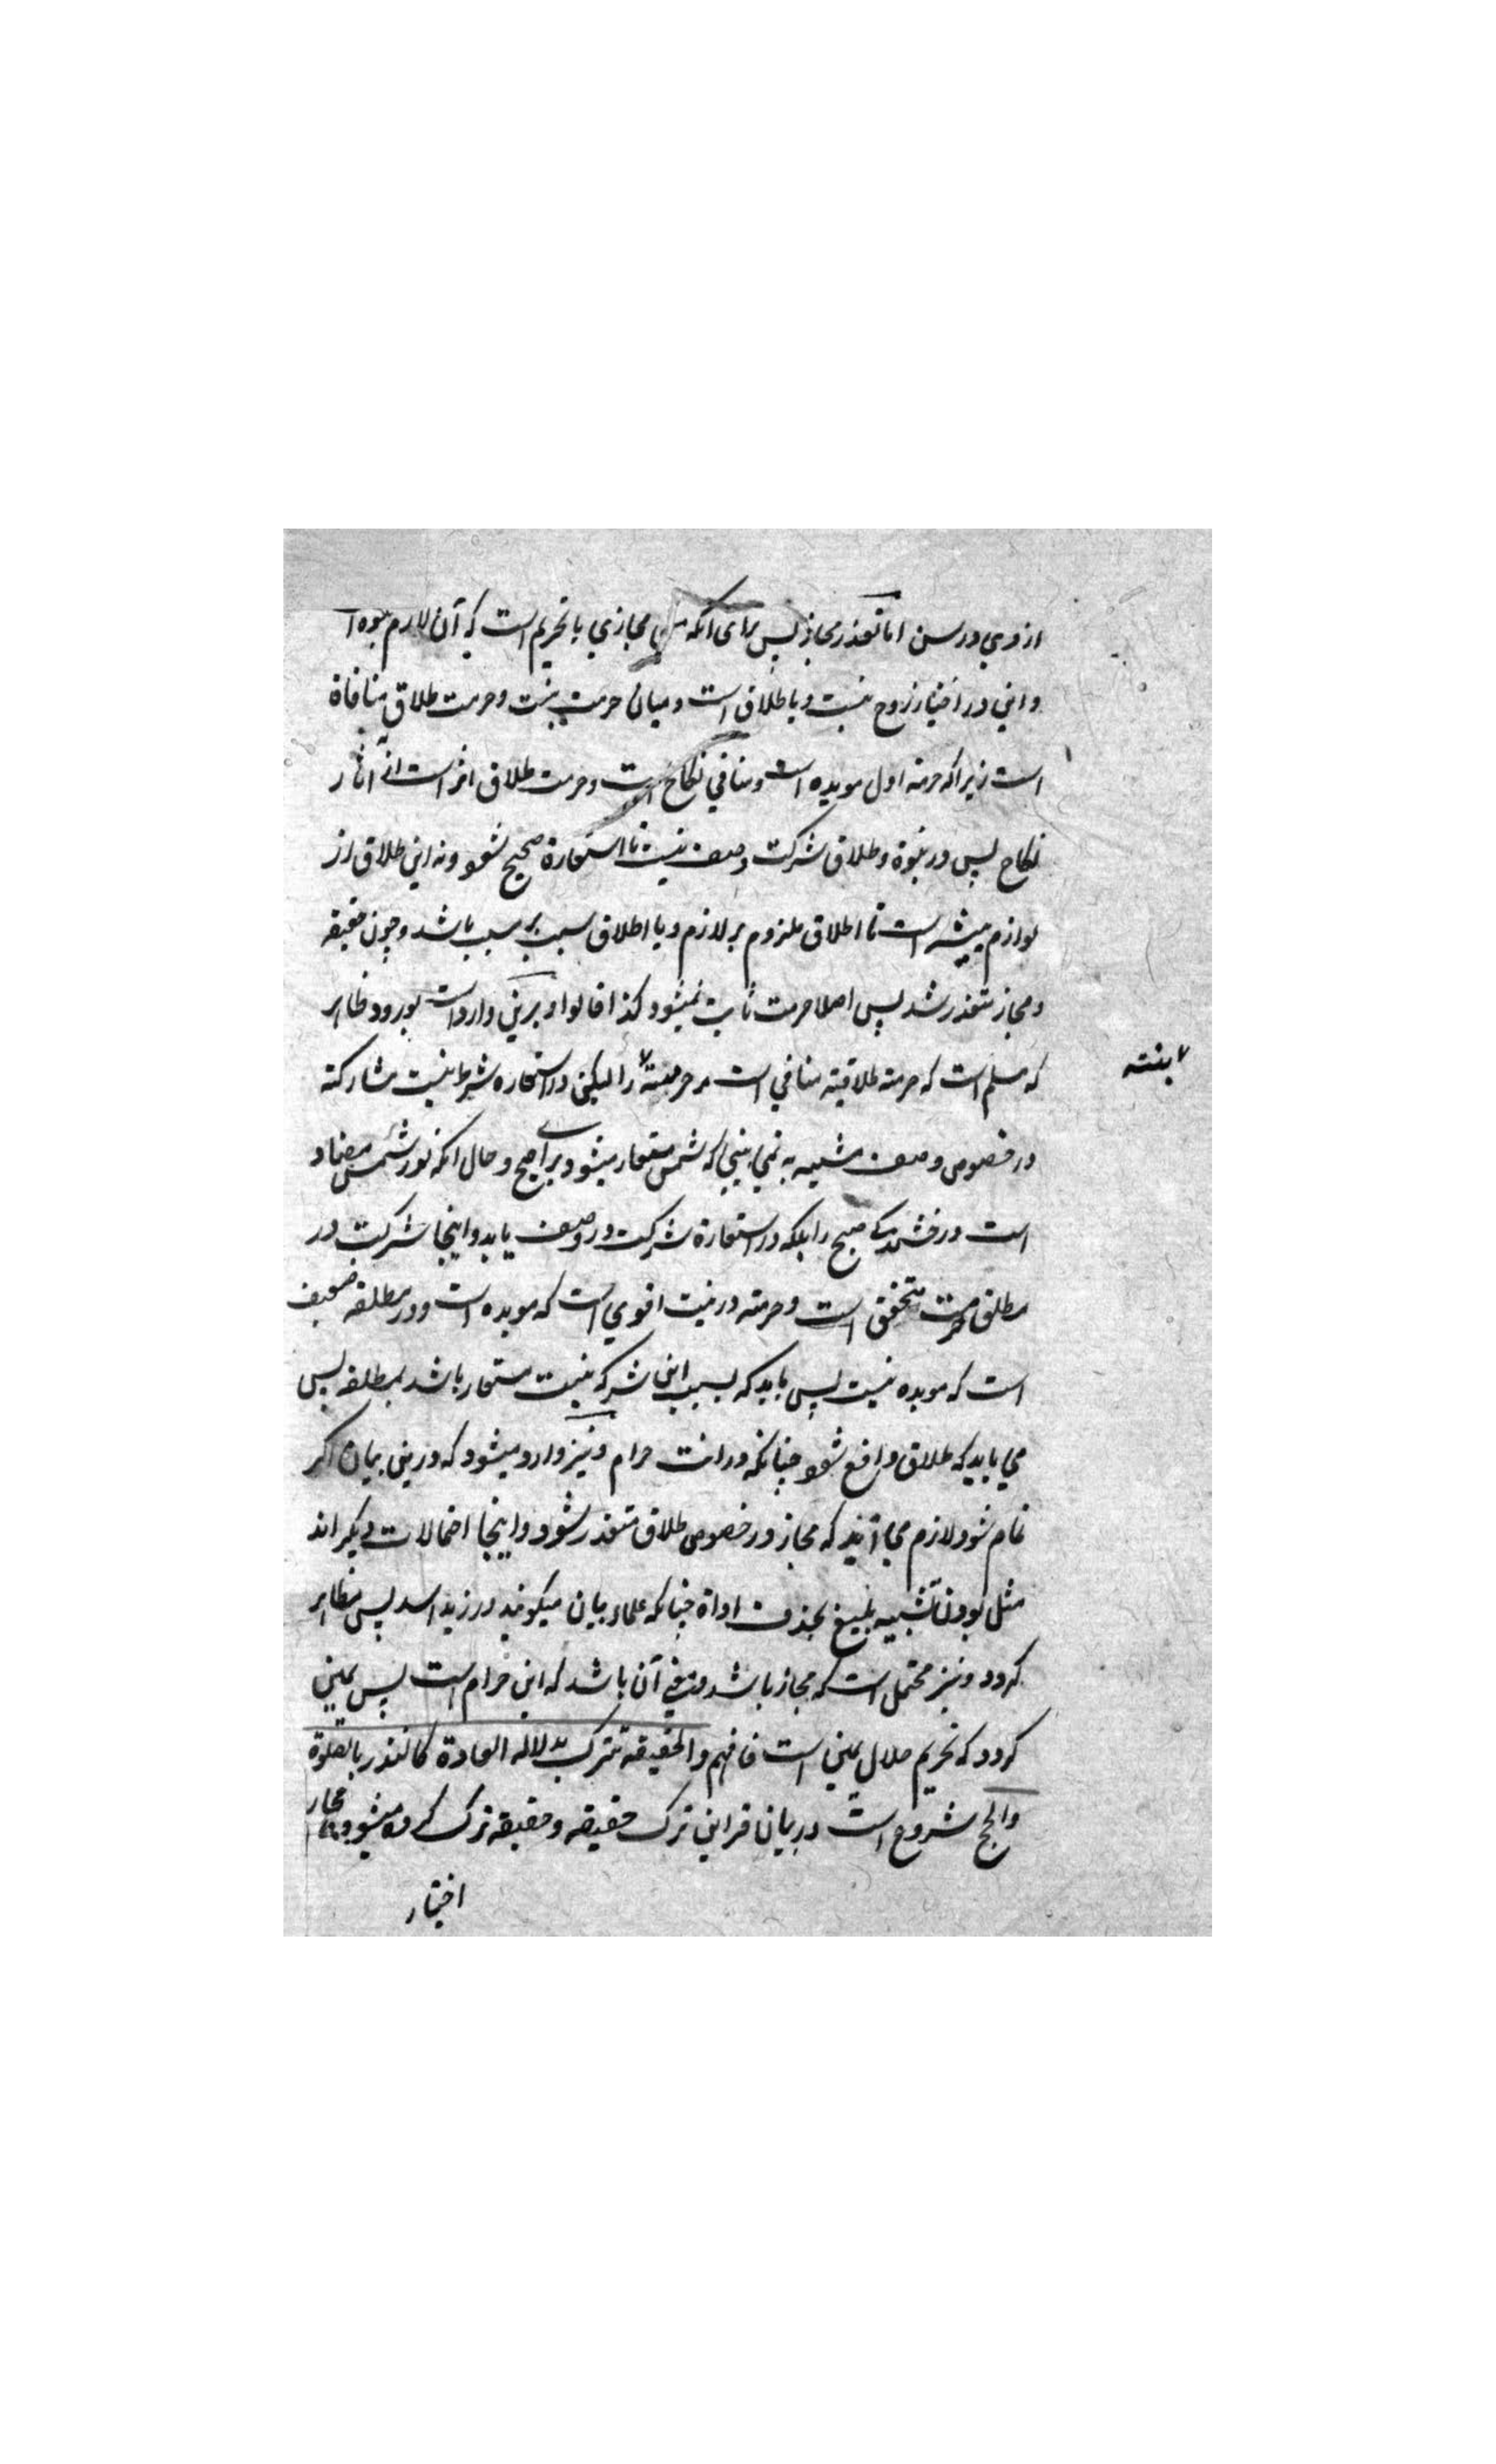 از وي در سن اما تعذر مجاز پس برای آنکه یا مجازي با تحریم است که آن لازم بنوة
و این در اختیار زوج نیست و یا طلاق است و میان حرمت بنت و حرمت طلاق منافاة
است زیراکه حرمة اول موبده است و منافي نکاح است و حرمت طلاق از آثار
نکاح پس در بنوة و طلاق شرکت وصف نیست تا استعارة صحیح شود و نه این طلاق از
لوازم است تا اطلاق ملزوم بر لازم و یا اطلاق سبب بر مسبب باشد و چون حقیقه
و مجاز متعذر شد پس اصلا حرمت ثابت نمیشود کذا قالوا و برین وارد است بورود ظاهر
که مسلم است که حرمة طلاقیة منافي است مر حرمة را لیکن در استعاره شرط نیست مشارکة
بنتیه
در خصوص وصف مشبه به نمي بیني که شمس مستعار میشود براي صبح و حال آنکه نور شمس مضاد
است درخشندگي صبح را بلکه در استعارة شرکت در وصف باید و اینجا شرکت در
مطلق حرمت متحقق است و حرمة در بنت اقوي است که موبده است و در مطلقه ضعیف
است که موبده نیست پس باید که بسبب این شرکة بنت مستعار باشد بمطلقه پس
مي باید که طلاق واقع شود چنانکه در انت حرام و نیز وارد میشود که درین بیان اگر
تمام شود لازم مي آید که مجاز در خصوص طلاق متعذر شود و اینجا احتمالات دیگر اند
مثل بودن تشبیه بلیغ بحذف اداة چنانکه علماء بیان میگویند در زید اسد پس مظاهر
گردد و نیز محتمل است که مجاز باشد و معني آن باشد که این حرام است پس یمین
گردد که تحریم حلال یمین است فافهم والحقیقة تترک بدلالة العادة کالنذر بالصلوة
والحج شروع است در بیان قراین ترک حقیقه و حقیقه ترک کرده میشود و مجاز
اختیار